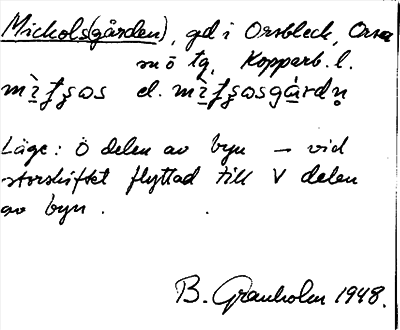 Mickols(gården), gd i Orsbleck, Orsa
sn ö tg, Kopparb. l.
el.
Läge: Ö delen av byn – vid
storskiftet flyttad till V delen
av byn.
B. Granholm 1948.